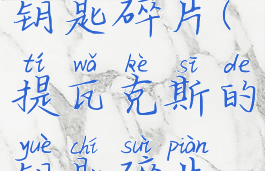 钥匙碎片(
tí wǎ kè sī de
提瓦克斯的
yuè chí suì piàn
钥匙碎片